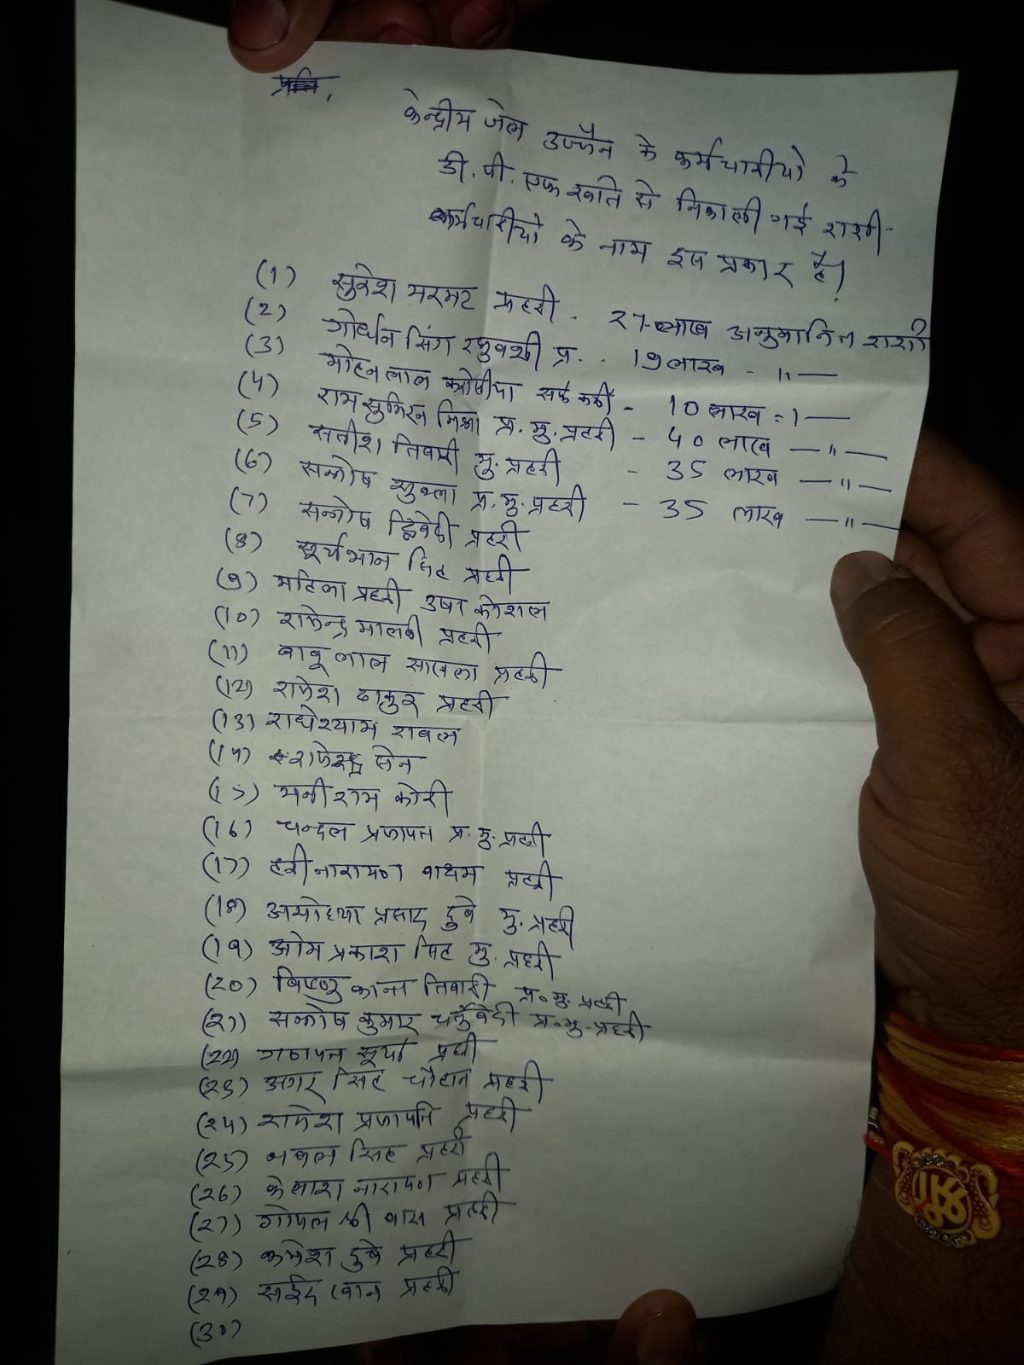 प्रति,
केन्द्रीय जेल उज्जैन के कर्मचारीयो के
डी. पी. एफ खाते से निकाली गई राशी
कर्मचारीयो के नाम इस प्रकार है।
(1) सुरेश मरमट प्रहरी - 27 लाख अनुमानित राशी
(2) गोर्धन सिंग रघुवंशी प्र. . 19 लाख - 〃 —
(3) मोहन लाल सफ कर्मी - 10 लाख = 1 —
(4) राम सुमिरन मिश्रा प्र. मु. प्रहरी - 40 लाख — 〃 —
(5) सतीश तिवारी मु. प्रहरी - 35 लाख — 〃 —
(6) सन्तोष शुक्ला प्र. मु. प्रहरी - 35 लाख — 〃 —
(7) सन्तोष द्विवेदी प्रहरी
(8) सूर्यभान सिह प्रहरी
(9) महिला प्रहरी उषा कौशल
(10) राजेन्द्र मालवी प्रहरी
(11) बाबू लाल प्रहरी
(12) राजेश ठाकुर प्रहरी
(13) राधेश्याम रावल
(14) सेन
(15) मनीराम कोरी
(16) चन्दल प्रजापत प्र. मु. प्रहरी
(17) हरीनारायण बाथम प्रहरी
(18) अयोध्या प्रसाद दुबे मु. प्रहरी
(19) ओम प्रकाश सिह मु. प्रहरी
(20) विष्णु कान्त तिवारी प्र. मु. प्रहरी
(21) सन्तोष कुमार चर्तुवेदी प्र. मु. प्रहरी
(22) गणपत प्रहरी
(23) अमर सिह चौहान प्रहरी
(24) रामेश प्रजापति प्रहरी
(25) सिह प्रहरी
(26) केलाश नारायण प्रहरी
(27) गोपाल श्री वास प्रहरी
(28) कमेश दुबे प्रहरी
(29) सईद खान प्रहरी
(30)